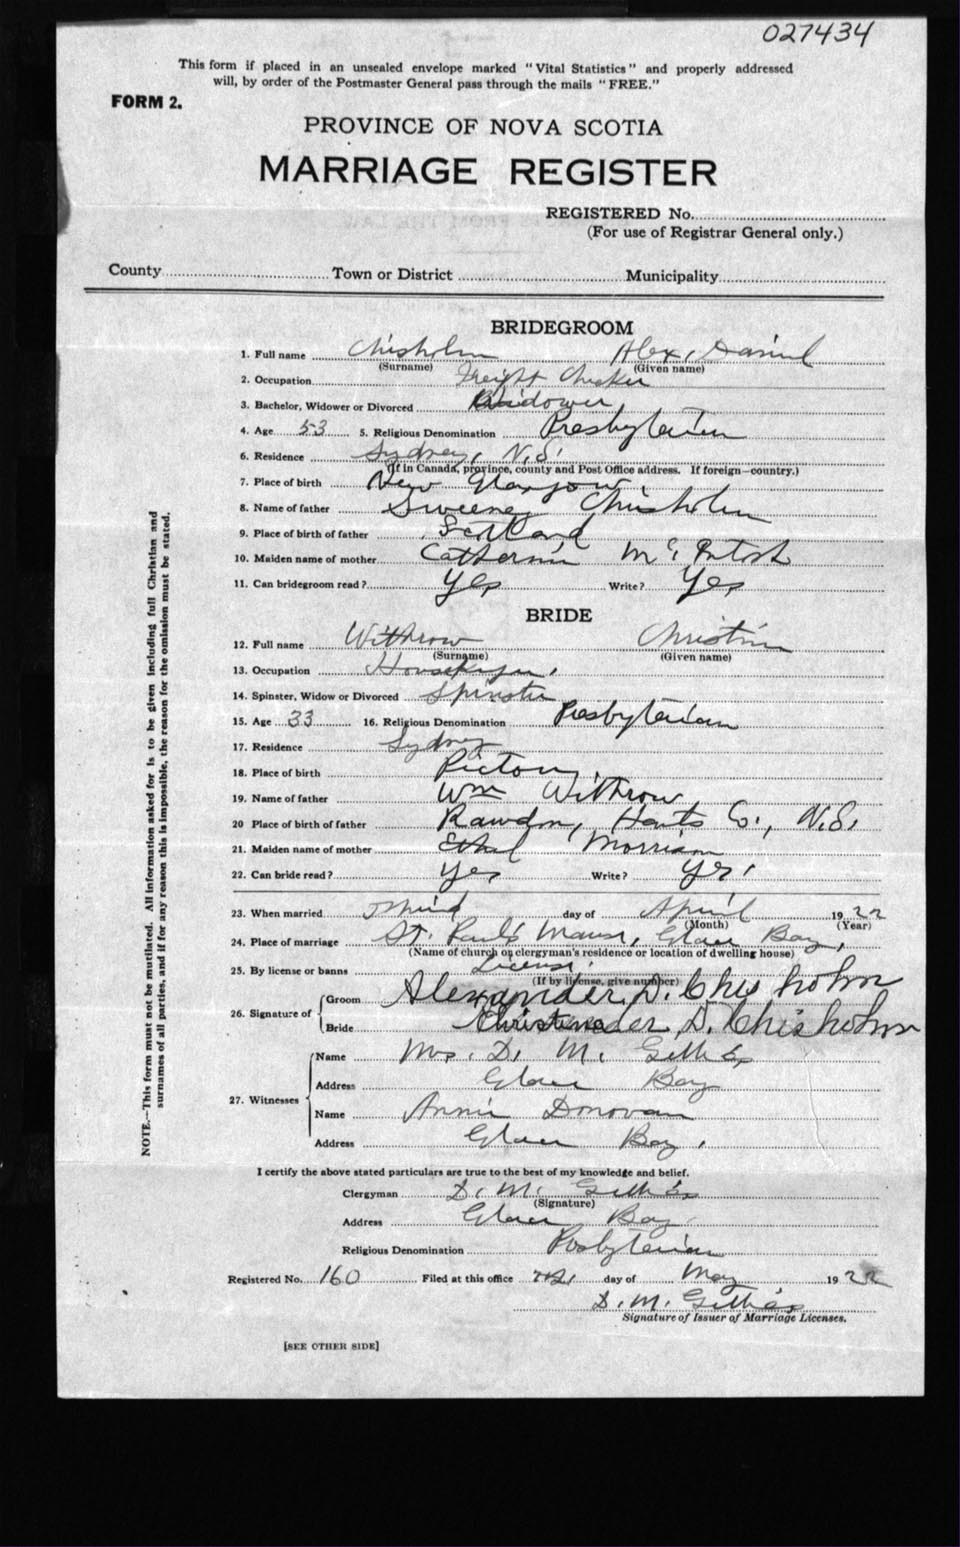 027434
This form if placed in an unsealed envelope marked "Vital Statistics" and properly addressed
will, by order of the Postmaster General pass through the mails "FREE."
FORM 2.
PROVINCE OF NOVA SCOTIA
MARRIAGE REGISTER
REGISTERED No.
(For use of Registrar General only.)
County Town or District Municipality
BRIDEGROOM
1. Full name Chisholm Alex, Daniel
(Surname) (Given name)
2. Occupation Freight Checker
3. Bachelor, Widower or Divorced Widower
4. Age 53 5. Religious Denomination Presbyterian
6. Residence Sydney, N.S.
(If in Canada, province, county and Post Office address. If foreign-country.)
7. Place of birth New Glasgow
8. Name of father Sweeney Chisholm
9. Place of birth of father Scotland
10. Maiden name of mother Catherine McIntosh
11. Can bridegroom read? Yes Write? Yes
BRIDE
12. Full name Withrow Christina
(Surname) (Given name)
13. Occupation Housekeeper
14. Spinster, Widow or Divorced Spinster
15. Age 33 16. Religious Denomination Presbyterian
17. Residence Sydney
18. Place of birth Pictou
19. Name of father Wm Withrow
20 Place of birth of father Rawdon, Hants Co., N.S.
21. Maiden name of mother Ethel Morrison
22. Can bride read? Yes Write? Yes
23. When married Third day of April 1922
(Month) (Year)
24. Place of marriage St. Paul's Manse, Glace Bay,
(Name of church or clergyman's residence or location of dwelling house)
25. By license or banns License
(If by license, give number)
26. Signature of
Groom Alexander D. Chisholm
Bride Christina D. Chisholm
27. Witnesses
Name Mrs. D. M. Gillies
Address Glace Bay
Name Annie Donovan
Address Glace Bay.
I certify the above stated particulars are true to the best of my knowledge and belief.
Clergyman D. M. Gillies
(Signature)
Address Glace Bay
Religious Denomination Presbyterian
Registered No. 160 Filed at this office day of May 1922
D. M. Gillies
Signature of Issuer of Marriage Licenses.
[SEE OTHER SIDE]
NOTE.—This form must not be mutilated. All information asked for is to be given including full Christian and
surnames of all parties, and if for any reason this is impossible, the reason for the omission must be stated.